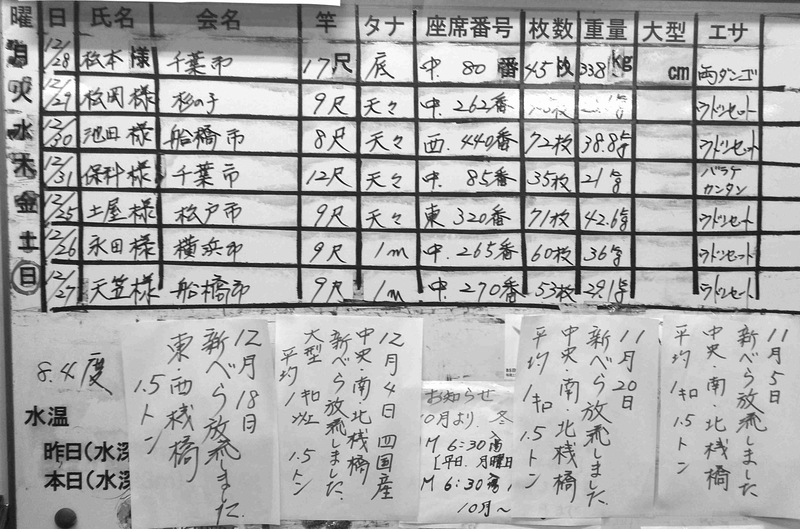 曜 日 氏名 会名 竿 タナ 座席番号 枚数 重量 大型 エサ
月 12/28 松本様 千葉市 17尺 底 中. 80番 45枚 33.8kg cm 両ダンゴ
火 12/29 松岡様 杉の子 9尺 天々 中. 262番 ウドンセット
水 12/30 池田様 船橋市 8尺 天々 西. 440番 72枚 38.8kg ウドンセット
木 12/31 保科様 千葉市 12尺 天々 中. 85番 35枚 21kg バラケ カンタン
金 12/25 土屋様 松戸市 9尺 天々 東 320番 71枚 42.6kg ウドンセット
土 12/26 永田様 横浜市 9尺 1m 中. 265番 60枚 36kg ウドンセット
日 12/27 天笠様 船橋市 9尺 1m 中. 270番 53枚 29.1kg ウドンセット
8.4度
水温
昨日(水深
本日(水深
12月18日
新べら放流しました.
東・西桟橋
1.5トン
12月4日 四国産
中央・南・北桟橋
新べら放流しました.
大型
平均 1キロ 1.5トン
お知らせ
10月より. 冬
AM 6:30
[平日. 月曜日
AM 6:30
10月~
11月20日
新べら放流しました
中央・南・北桟橋
平均 1キロ 1.5トン
11月5日
新べら放流しました
中央・南・北桟橋
平均 1キロ 1.5トン